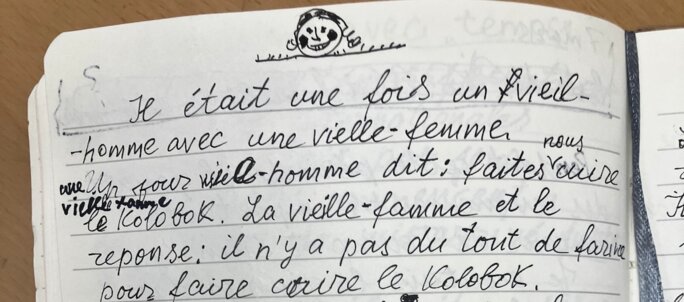 Il était une fois un vieil-
-homme avec une vielle-femme.
Un jour vieil-homme dit: faites nous cuire
une vielle-famme
le Kolobok. La vieille-famme et le
reponse: il n'y a pas du tout de farine
pour faire cuire le Kolobok.